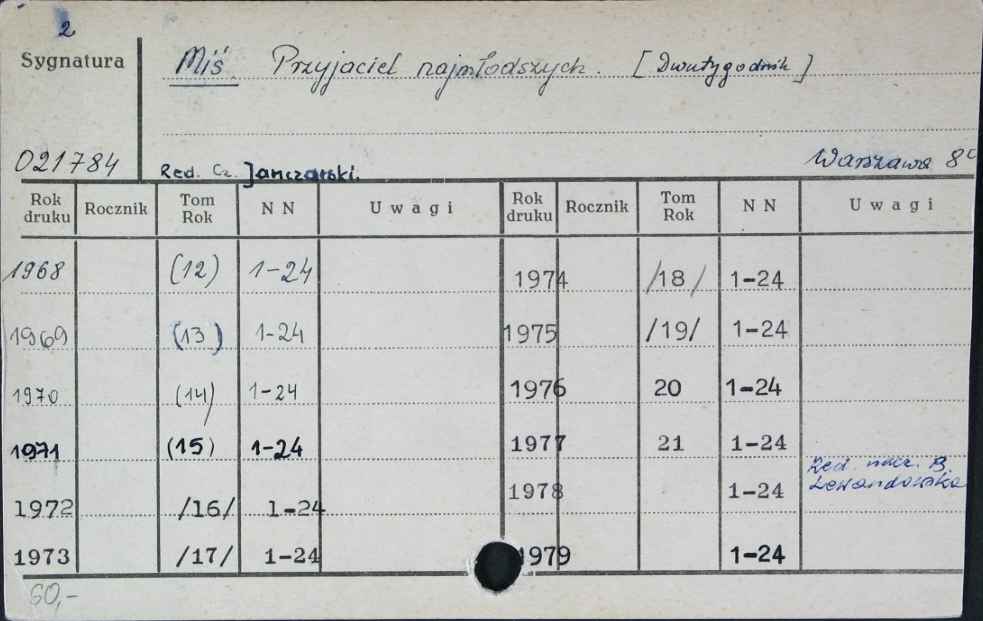 2
Sygnatura Miś. Przyjaciel najmłodszych. [Dwutygodnik]
021784 Red. Cz. Janczarski. Warszawa 8°
Rok druku Rocznik Tom Rok NN Uwagi Rok druku Rocznik Tom Rok NN Uwagi
1968 (12) 1-24 1974 /18/ 1-24
1969 (13) 1-24 1975 /19/ 1-24
1970 (14) 1-24 1976 20 1-24
1971 (15) 1-24 1977 21 1-24
1972 /16/ 1-24 1978 1-24 Red. nacz. B. Lewandowska
1973 /17/ 1-24 1979 1-24
60,-